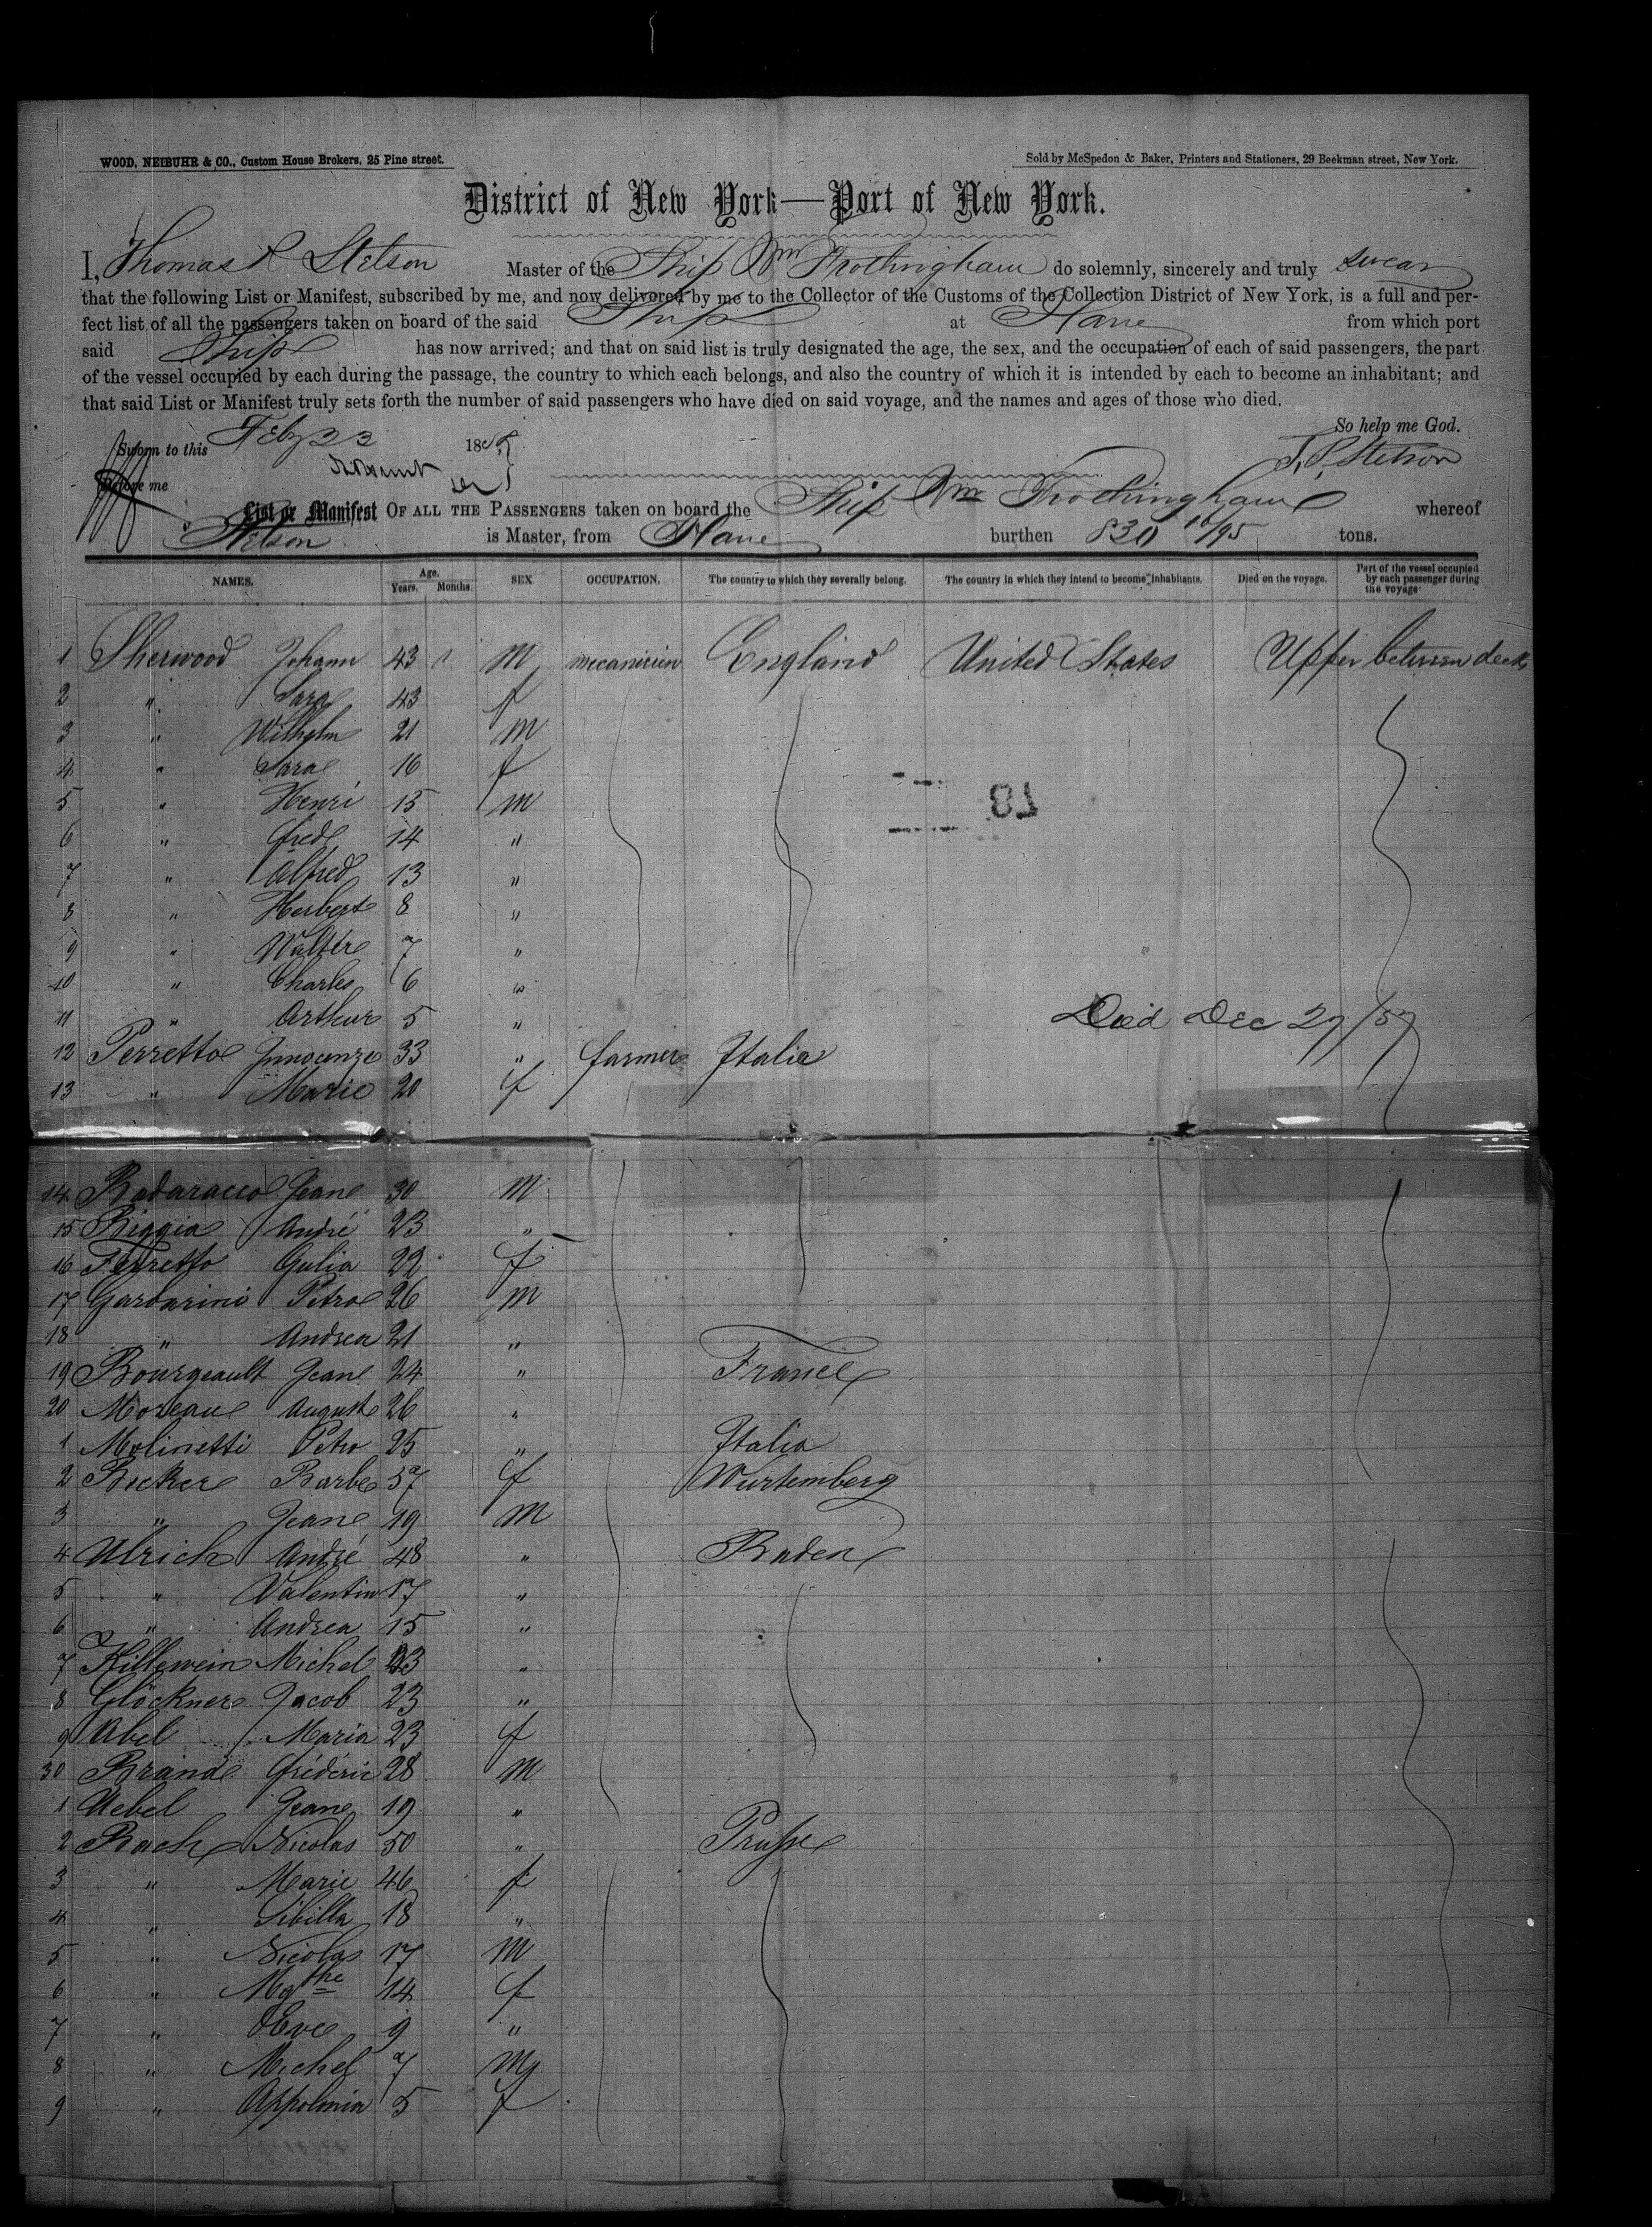 WOOD, NEIBUHR & CO., Custom House Brokers, 25 Pine street.
Sold by McSpedon & Baker, Printers and Stationers, 29 Beekman street, New York.
District of New York—Port of New York.
I, Thomas P Stetson Master of the Ship Wm Frothingham do solemnly, sincerely and truly swear
that the following List or Manifest, subscribed by me, and now delivered by me to the Collector of the Customs of the Collection District of New York, is a full and per-
fect list of all the passengers taken on board of the said Ship at Havre from which port
said Ship has now arrived; and that on said list is truly designated the age, the sex, and the occupation of each of said passengers, the part
of the vessel occupied by each during the passage, the country to which each belongs, and also the country of which it is intended by each to become an inhabitant; and
that said List or Manifest truly sets forth the number of said passengers who have died on said voyage, and the names and ages of those who died.
So help me God.
Sworn to this Feby 23 185
T. P. Stetson
Before me
List or Manifest OF ALL THE PASSENGERS taken on board the Ship Wm Frothingham whereof
Stetson is Master, from Havre burthen 830 10/95 tons.
NAMES. Age. Years. Months. SEX OCCUPATION. The country to which they severally belong. The country in which they intend to become inhabitants. Died on the voyage. Part of the vessel occupied by each passenger during the voyage
1 Sherwood Johann 43 M mecanicien England United States Upper between decks
2 " Sara 43 f
3 " Wilhelm 21 M
4 " Sara 16 f
5 " Henri 15 M
6 " fred 14 "
7 " Alfred 13 "
8 " Herbert 8 "
9 " Walter 7 "
10 " Charles 6 "
11 " Arthur 5 " Died Dec 27/57
12 Perretto Innocenzo 33 " farmer Italia
13 " Marie 20 f
14 Badaracco Jean 30 M
15 Biggia André 23 "
16 Ferretto Gulia 22 f
17 Garbarini Petro 26 M
18 " Andrea 21 "
19 Bourgeault Jean 24 " France
20 Moreau Auguste 26 "
1 Molinetti Petro 25 " Italia
2 Becker Barbe 57 f Wurtemberg
3 " Jean 19 M
4 Ulrich André 48 " Baden
5 " Valentin 17 "
6 " Andrea 15 "
7 Killewein Michel 23 "
8 Glöckner Jacob 23 "
9 Abel Maria 23 f
30 Brand fréderic 28 M
1 Uebel Jean 19 "
2 Bach Nicolas 50 " Prusse
3 " Marie 46 f
4 " Sibilla 18 "
5 " Nicolas 17 M
6 " Mgthe 14 f
7 " Eve 9 "
8 " Michel 7 M
9 " Appolonia 5 f